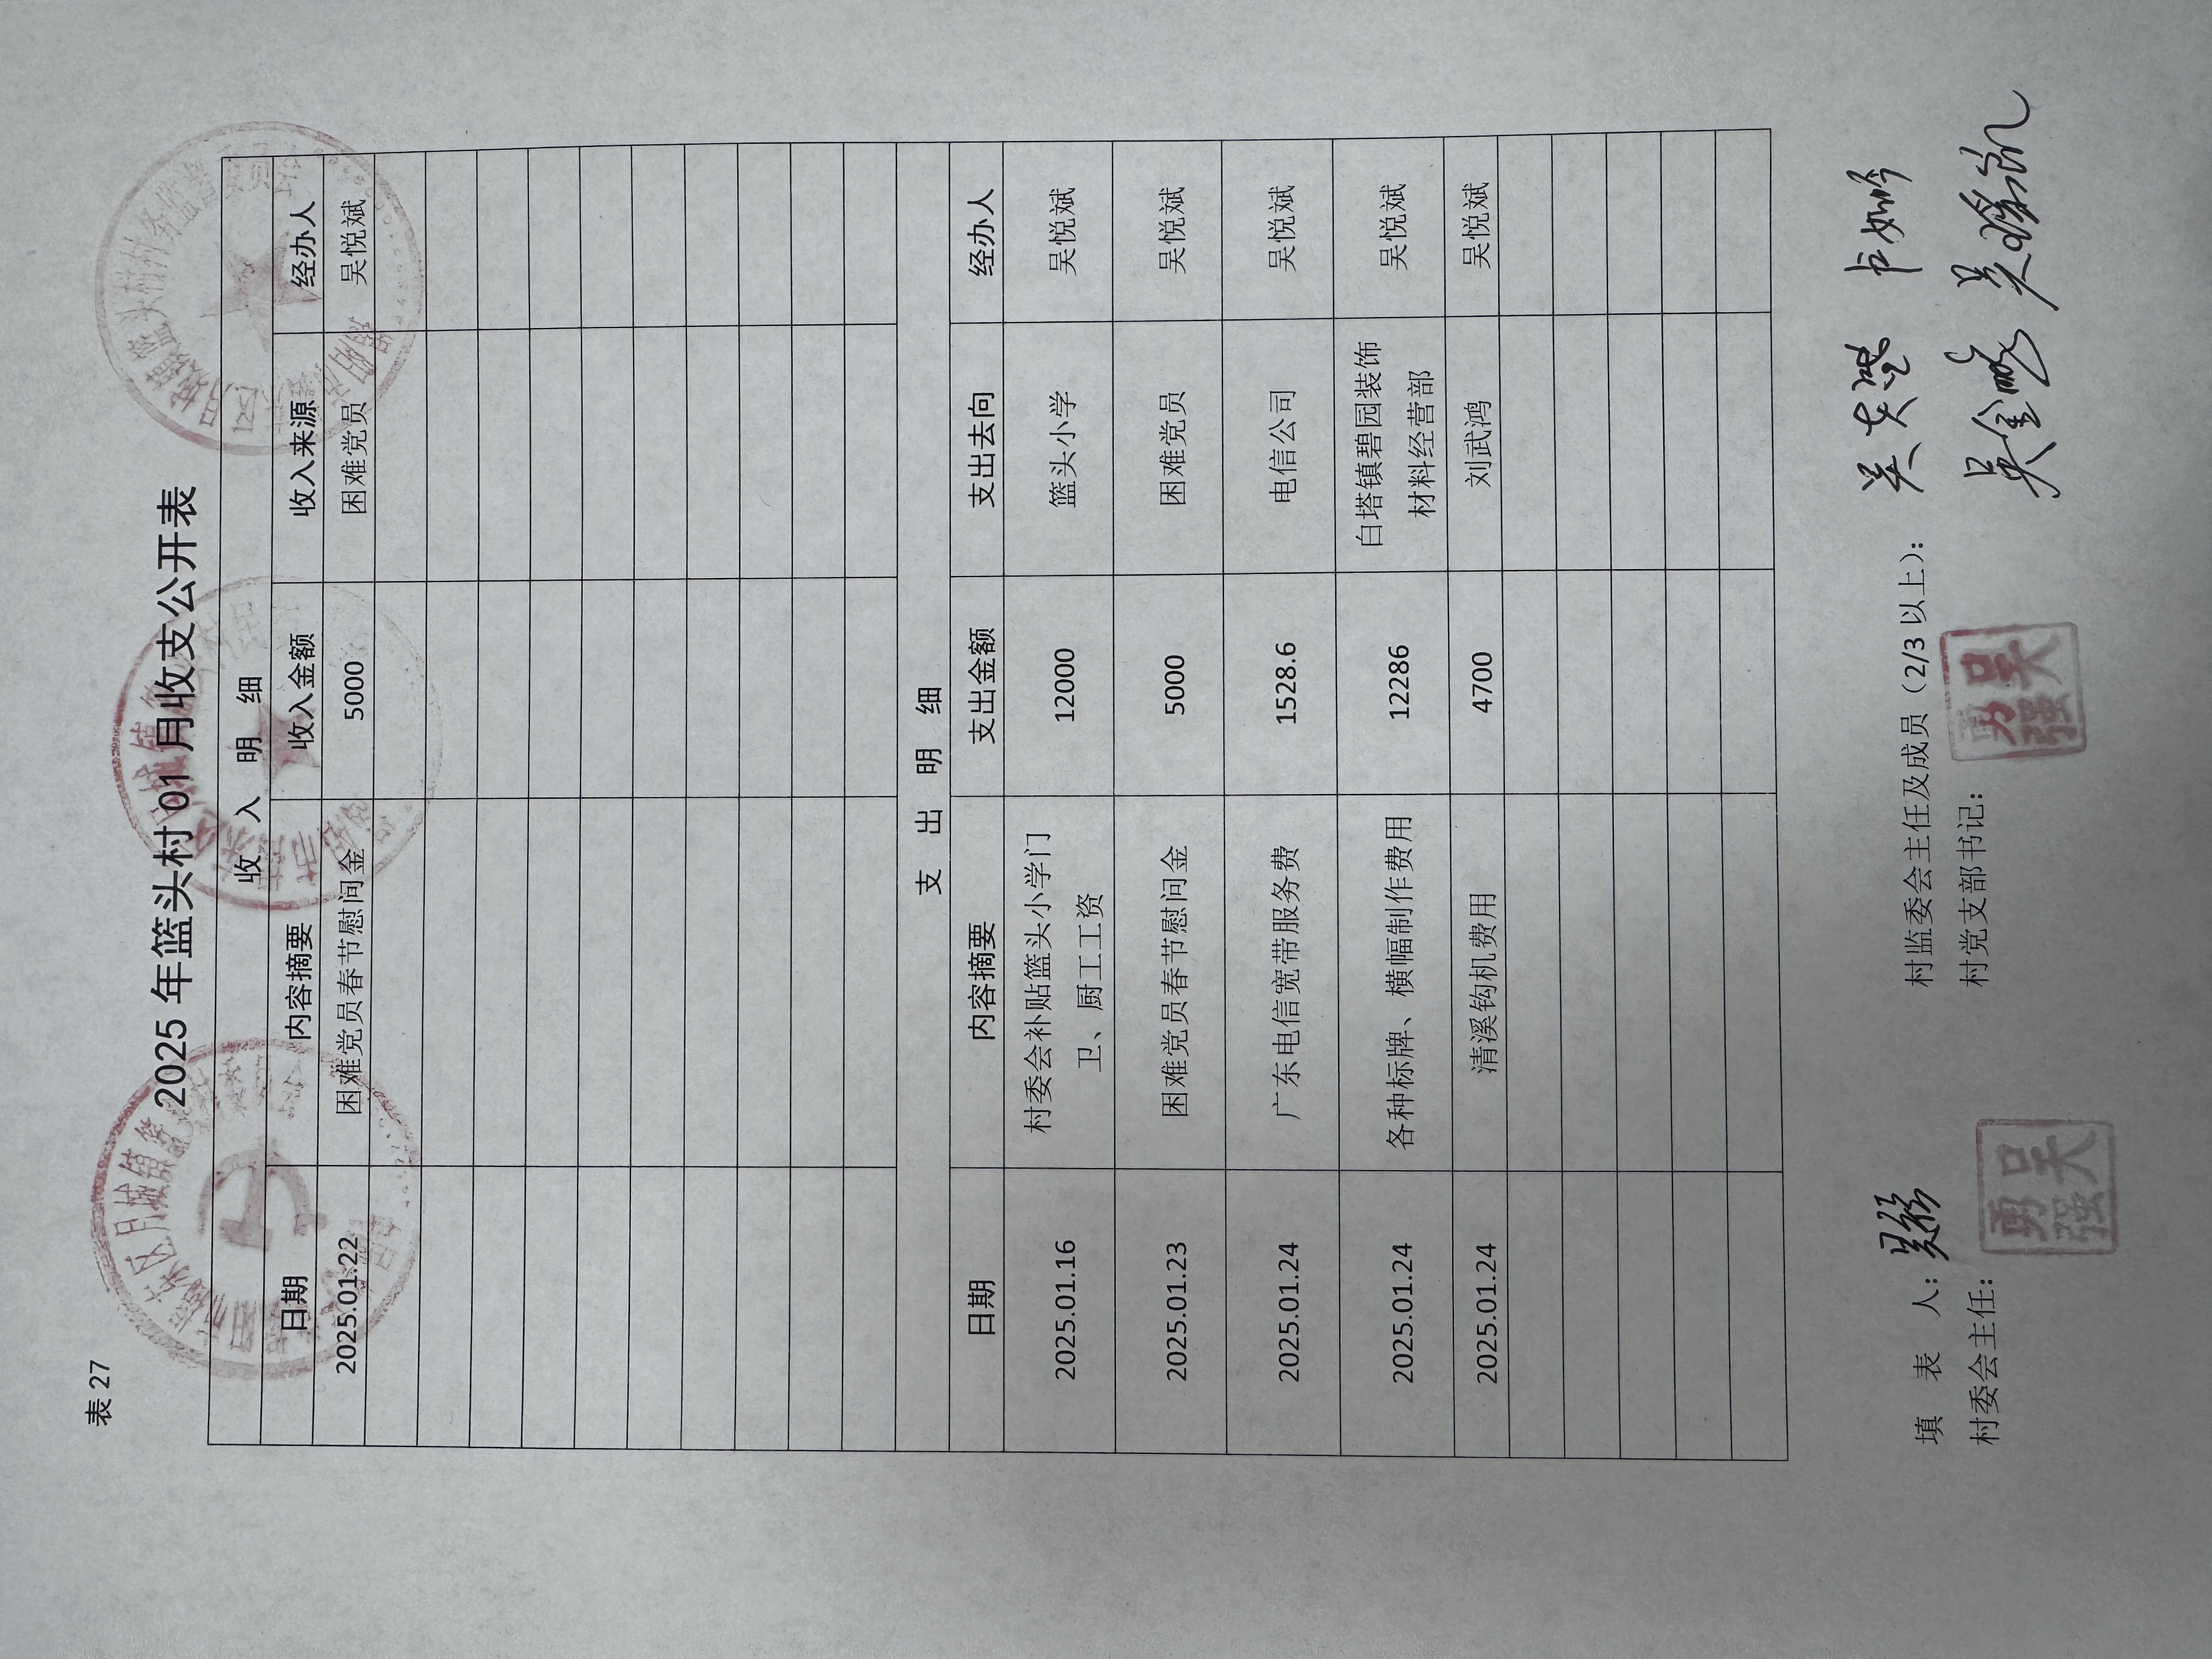 表 27
2025 年篮头村 01 月收支公开表
收 入 明 细
日期 内容摘要 收入金额 收入来源 经办人
2025.01.22 困难党员春节慰问金 5000 困难党员 吴悦斌
支 出 明 细
日期 内容摘要 支出金额 支出去向 经办人
2025.01.16 村委会补贴篮头小学门 12000 篮头小学 吴悦斌
卫、厨工工资
2025.01.23 困难党员春节慰问金 5000 困难党员 吴悦斌
2025.01.24 广东电信宽带服务费 1528.6 电信公司 吴悦斌
2025.01.24 各种标牌、横幅制作费用 12286 白塔镇碧园装饰 吴悦斌
材料经营部
2025.01.24 清溪钩机费用 4700 刘武鸿 吴悦斌
填 表 人: 村监委会主任及成员（2/3 以上）:
村委会主任: 吴勇强 村党支部书记: 吴勇强